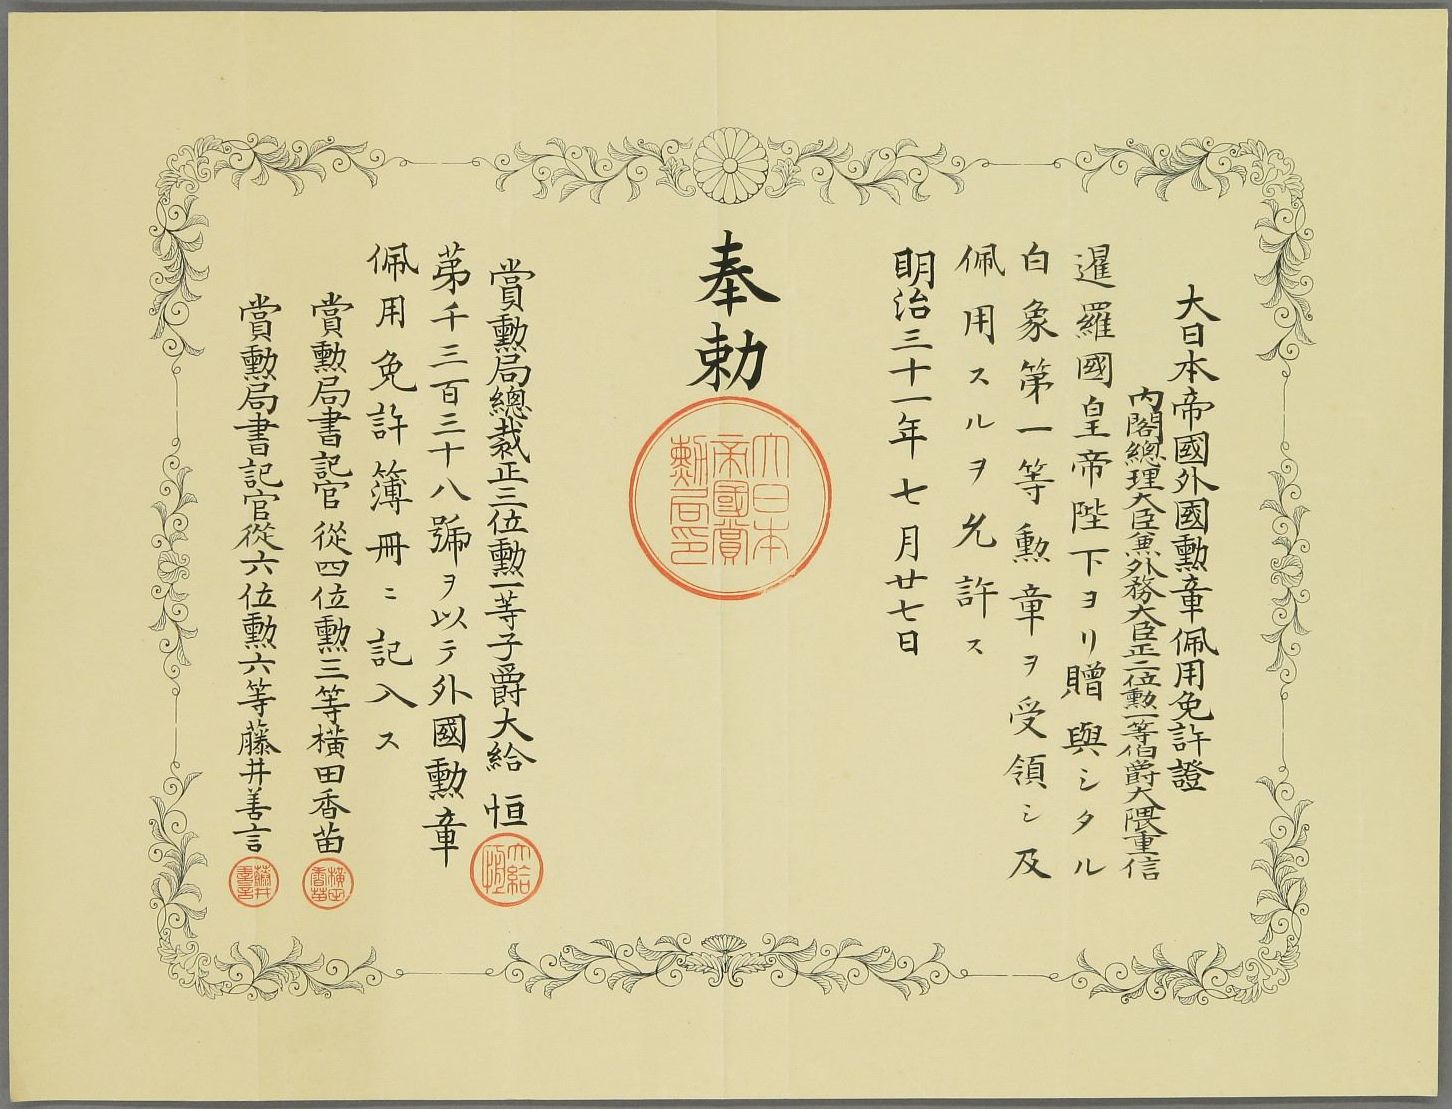 大日本帝國外國勲章佩用免許證
内閣總理大臣兼外務大臣正二位勲一等伯爵大隈重信
暹羅國皇帝陛下ヨリ贈與シタル
白象第一等勲章ヲ受領シ及
佩用スルヲ允許ス
明治三十一年七月廿七日
奉勅
大日本
帝國賞
勲局印
賞勲局總裁正三位勲一等子爵大給恒
大給
恒
第千三百三十八號ヲ以テ外國勲章
佩用免許簿冊ニ記入ス
賞勲局書記官從四位勲三等横田香苗
横田
香苗
賞勲局書記官從六位勲六等藤井善言
藤井
善言